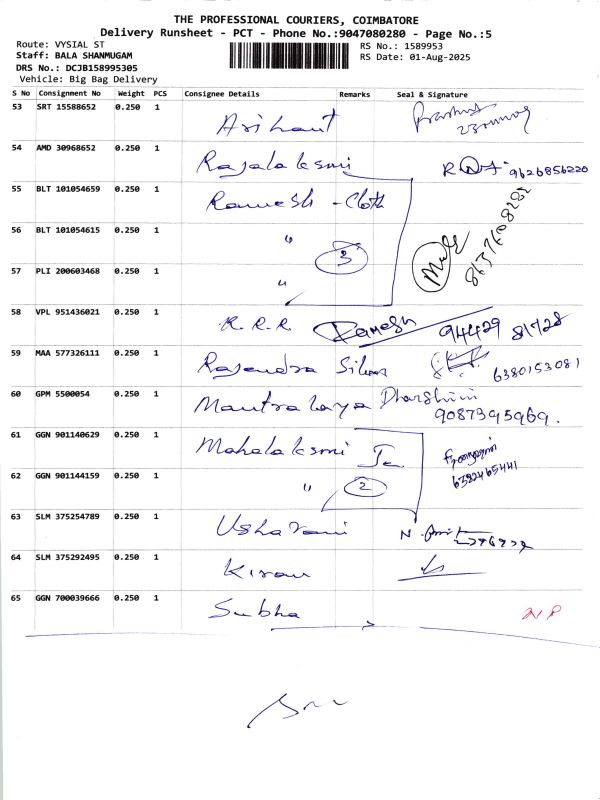 THE PROFESSIONAL COURIERS, COIMBATORE
Delivery Runsheet - PCT - Phone No.:9047080280 - Page No.:5
Route: VYSIAL ST
RS No.: 1589953
Staff: BALA SHANMUGAM
RS Date: 01-Aug-2025
DRS No.: DCJB158995305
Vehicle: Big Bag Delivery
S No Consignment No Weight PCS Consignee Details Remarks Seal & Signature
53 SRT 15588652 0.250 1 Arihant
54 AMD 30968652 0.250 1 Rajalaksmi 9626856220
55 BLT 101054659 0.250 1 Ramesh - Cloth
56 BLT 101054615 0.250 1 " 3 8637608282
57 PLI 200603468 0.250 1 "
58 VPL 951436021 0.250 1 R.R.R Ramesh 94429 81728
59 MAA 577326111 0.250 1 Rajendra Silver 6380153081
60 GPM 5500054 0.250 1 Mantralaya Dharshini
9087395969.
61 GGN 901140629 0.250 1 Mahalaksmi
62 GGN 901144159 0.250 1 " 2 6382465441
63 SLM 375254789 0.250 1 Usharani
64 SLM 375292495 0.250 1 Kiran
65 GGN 700039666 0.250 1 Subha NP